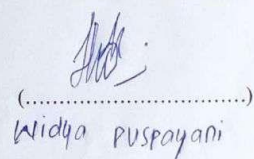 (..............................)
Widya puspayani